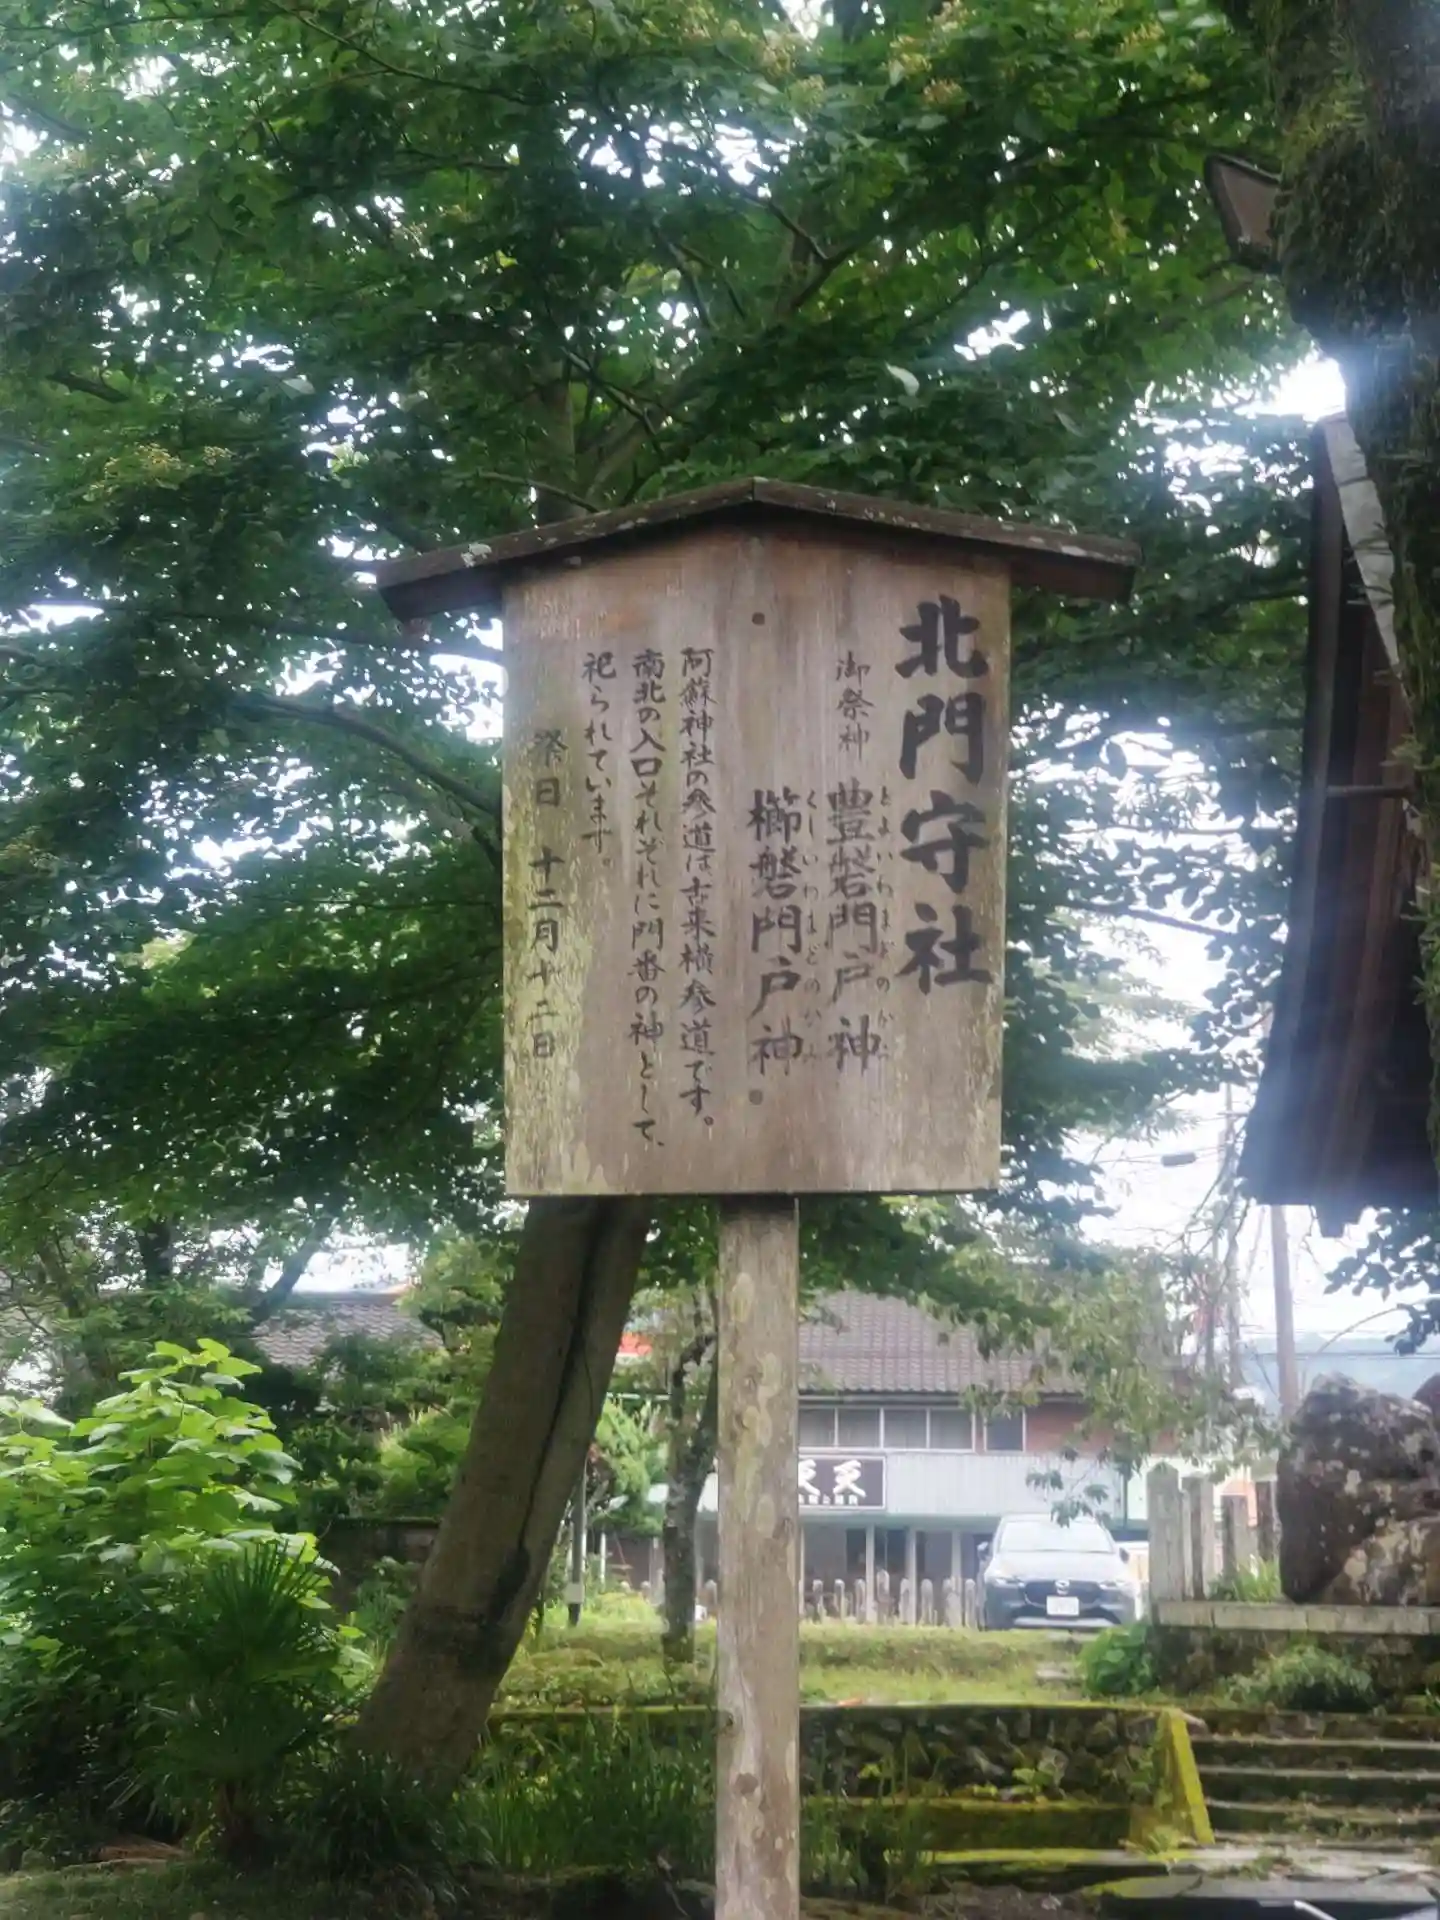 北門守社
御祭神 豊磐門戸神
とよいわまどのかみ
櫛磐門戸神
くしいわまどのかみ
阿蘇神社の参道は古来横参道です。
南北の入口それぞれに門番の神として、
祀られています。
祭日 十二月十二日
天天